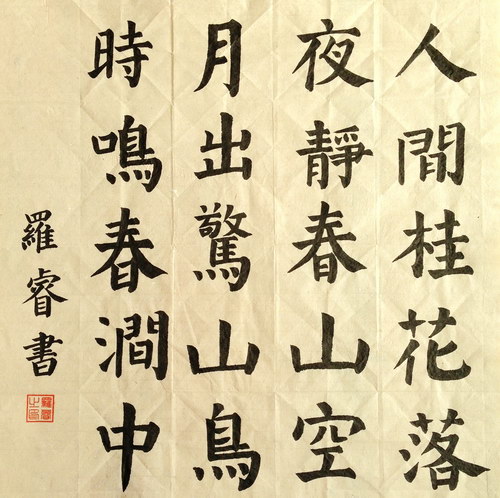 人間桂花落
夜靜春山空
月出驚山鳥
時鳴春澗中
羅睿書